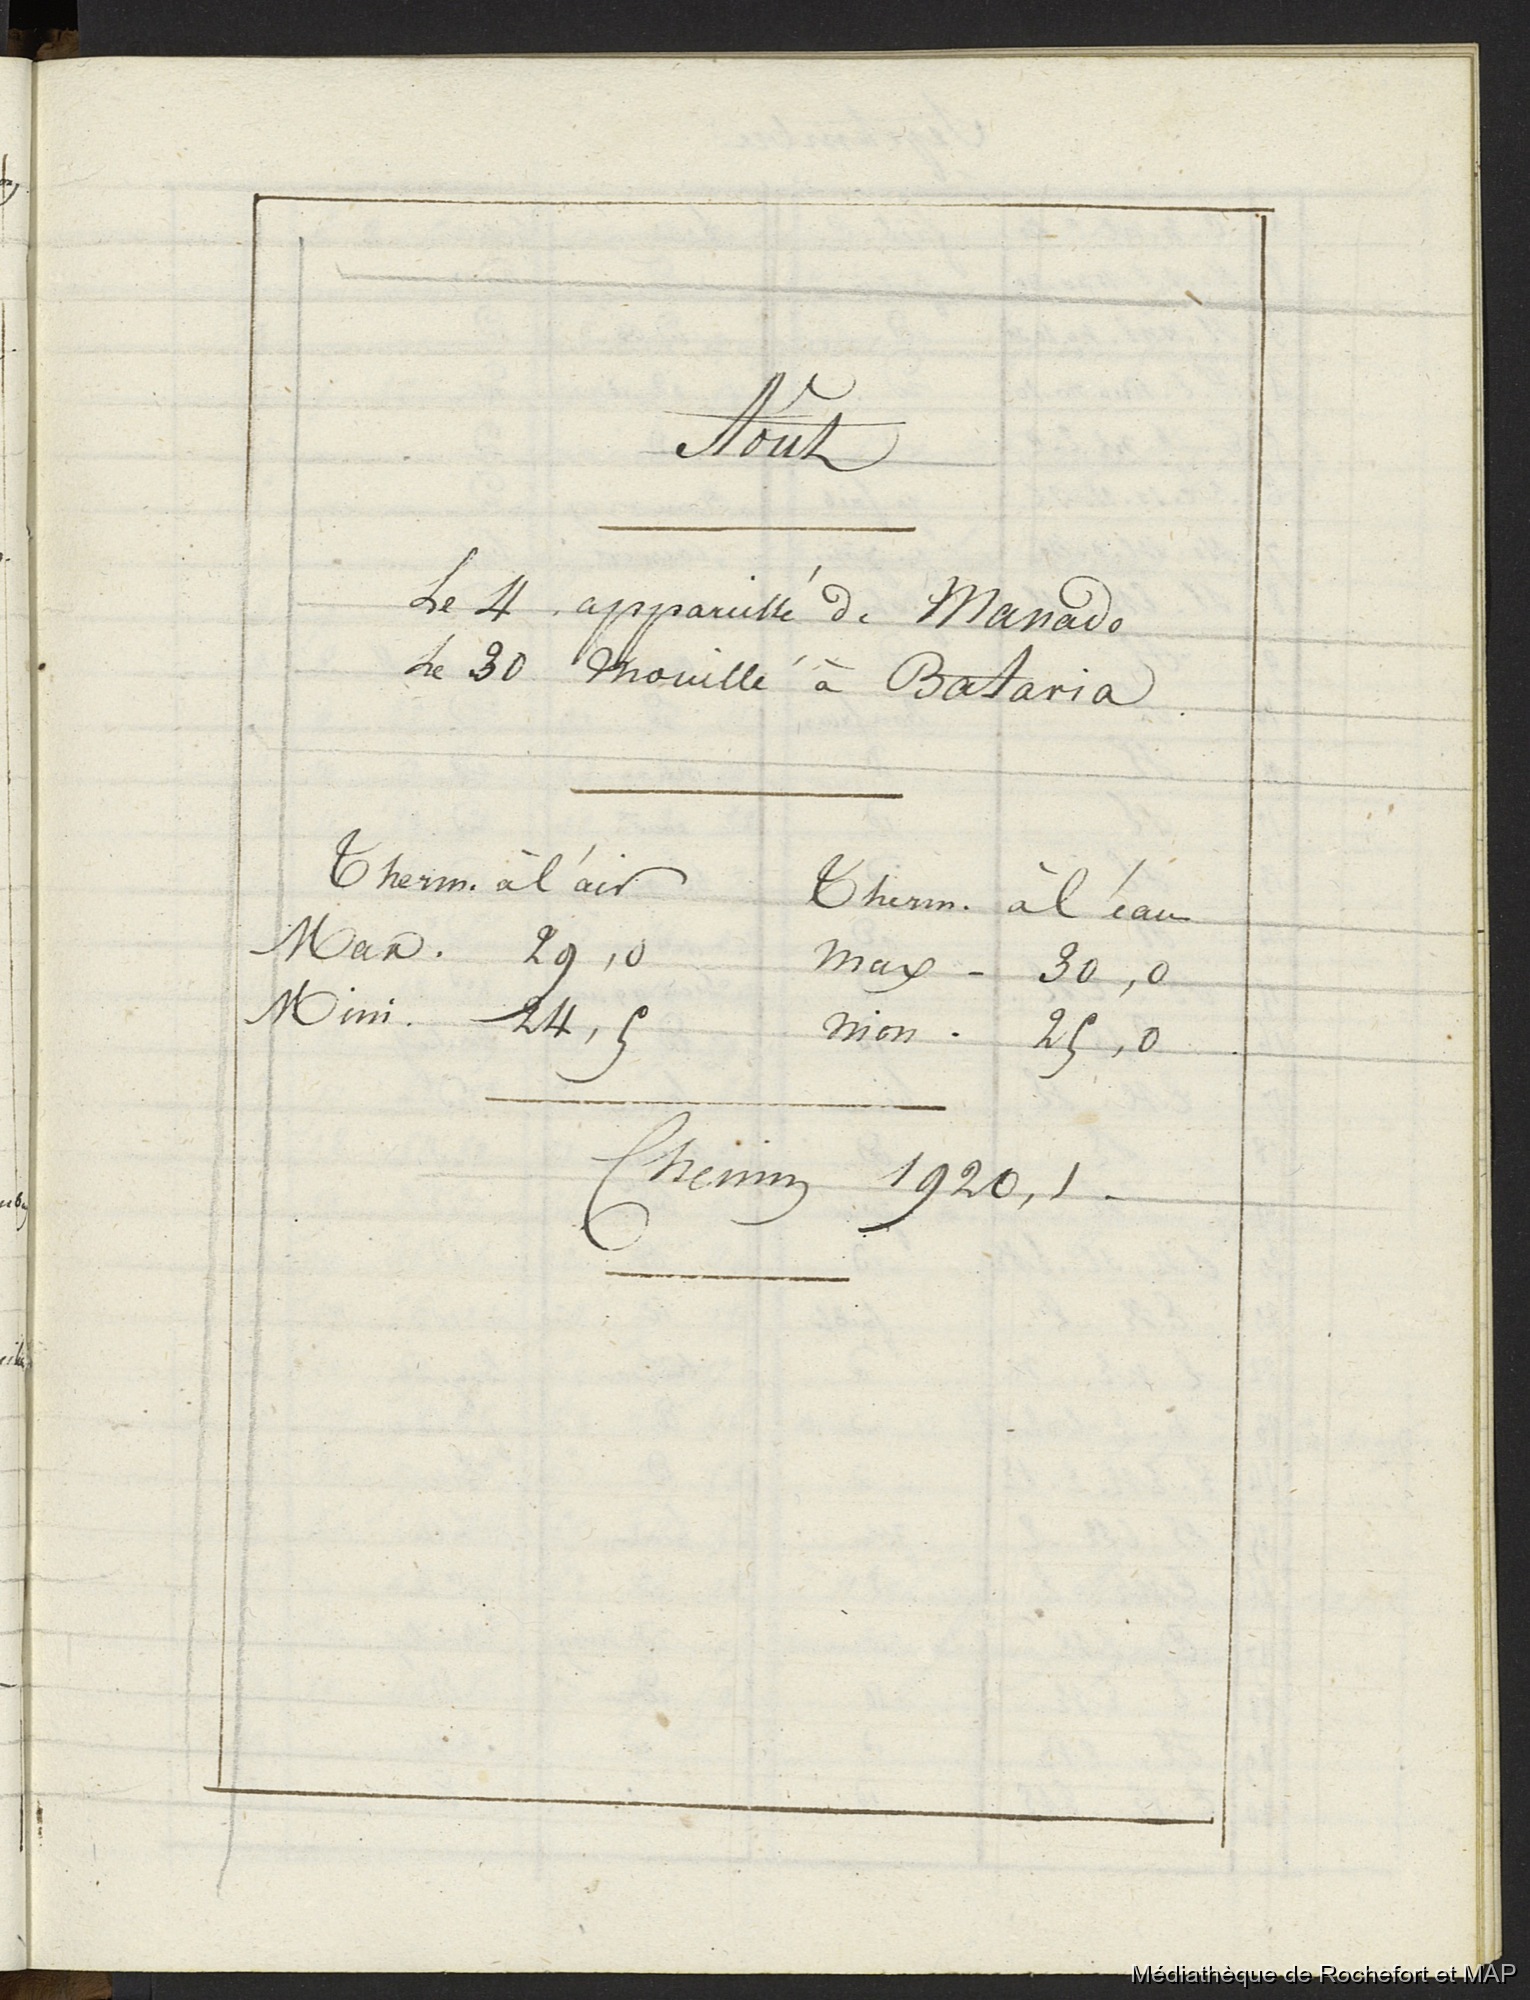 Août
Le 4 appareillé de Manado
Le 30 Mouillé à Batavia
Therm. à l'air Therm. à l'eau
Max. 29,0 Max - 30,0
Mini. 24,5 min. 25,0
Chemin 1920,1 -
Médiathèque de Rochefort et MAP